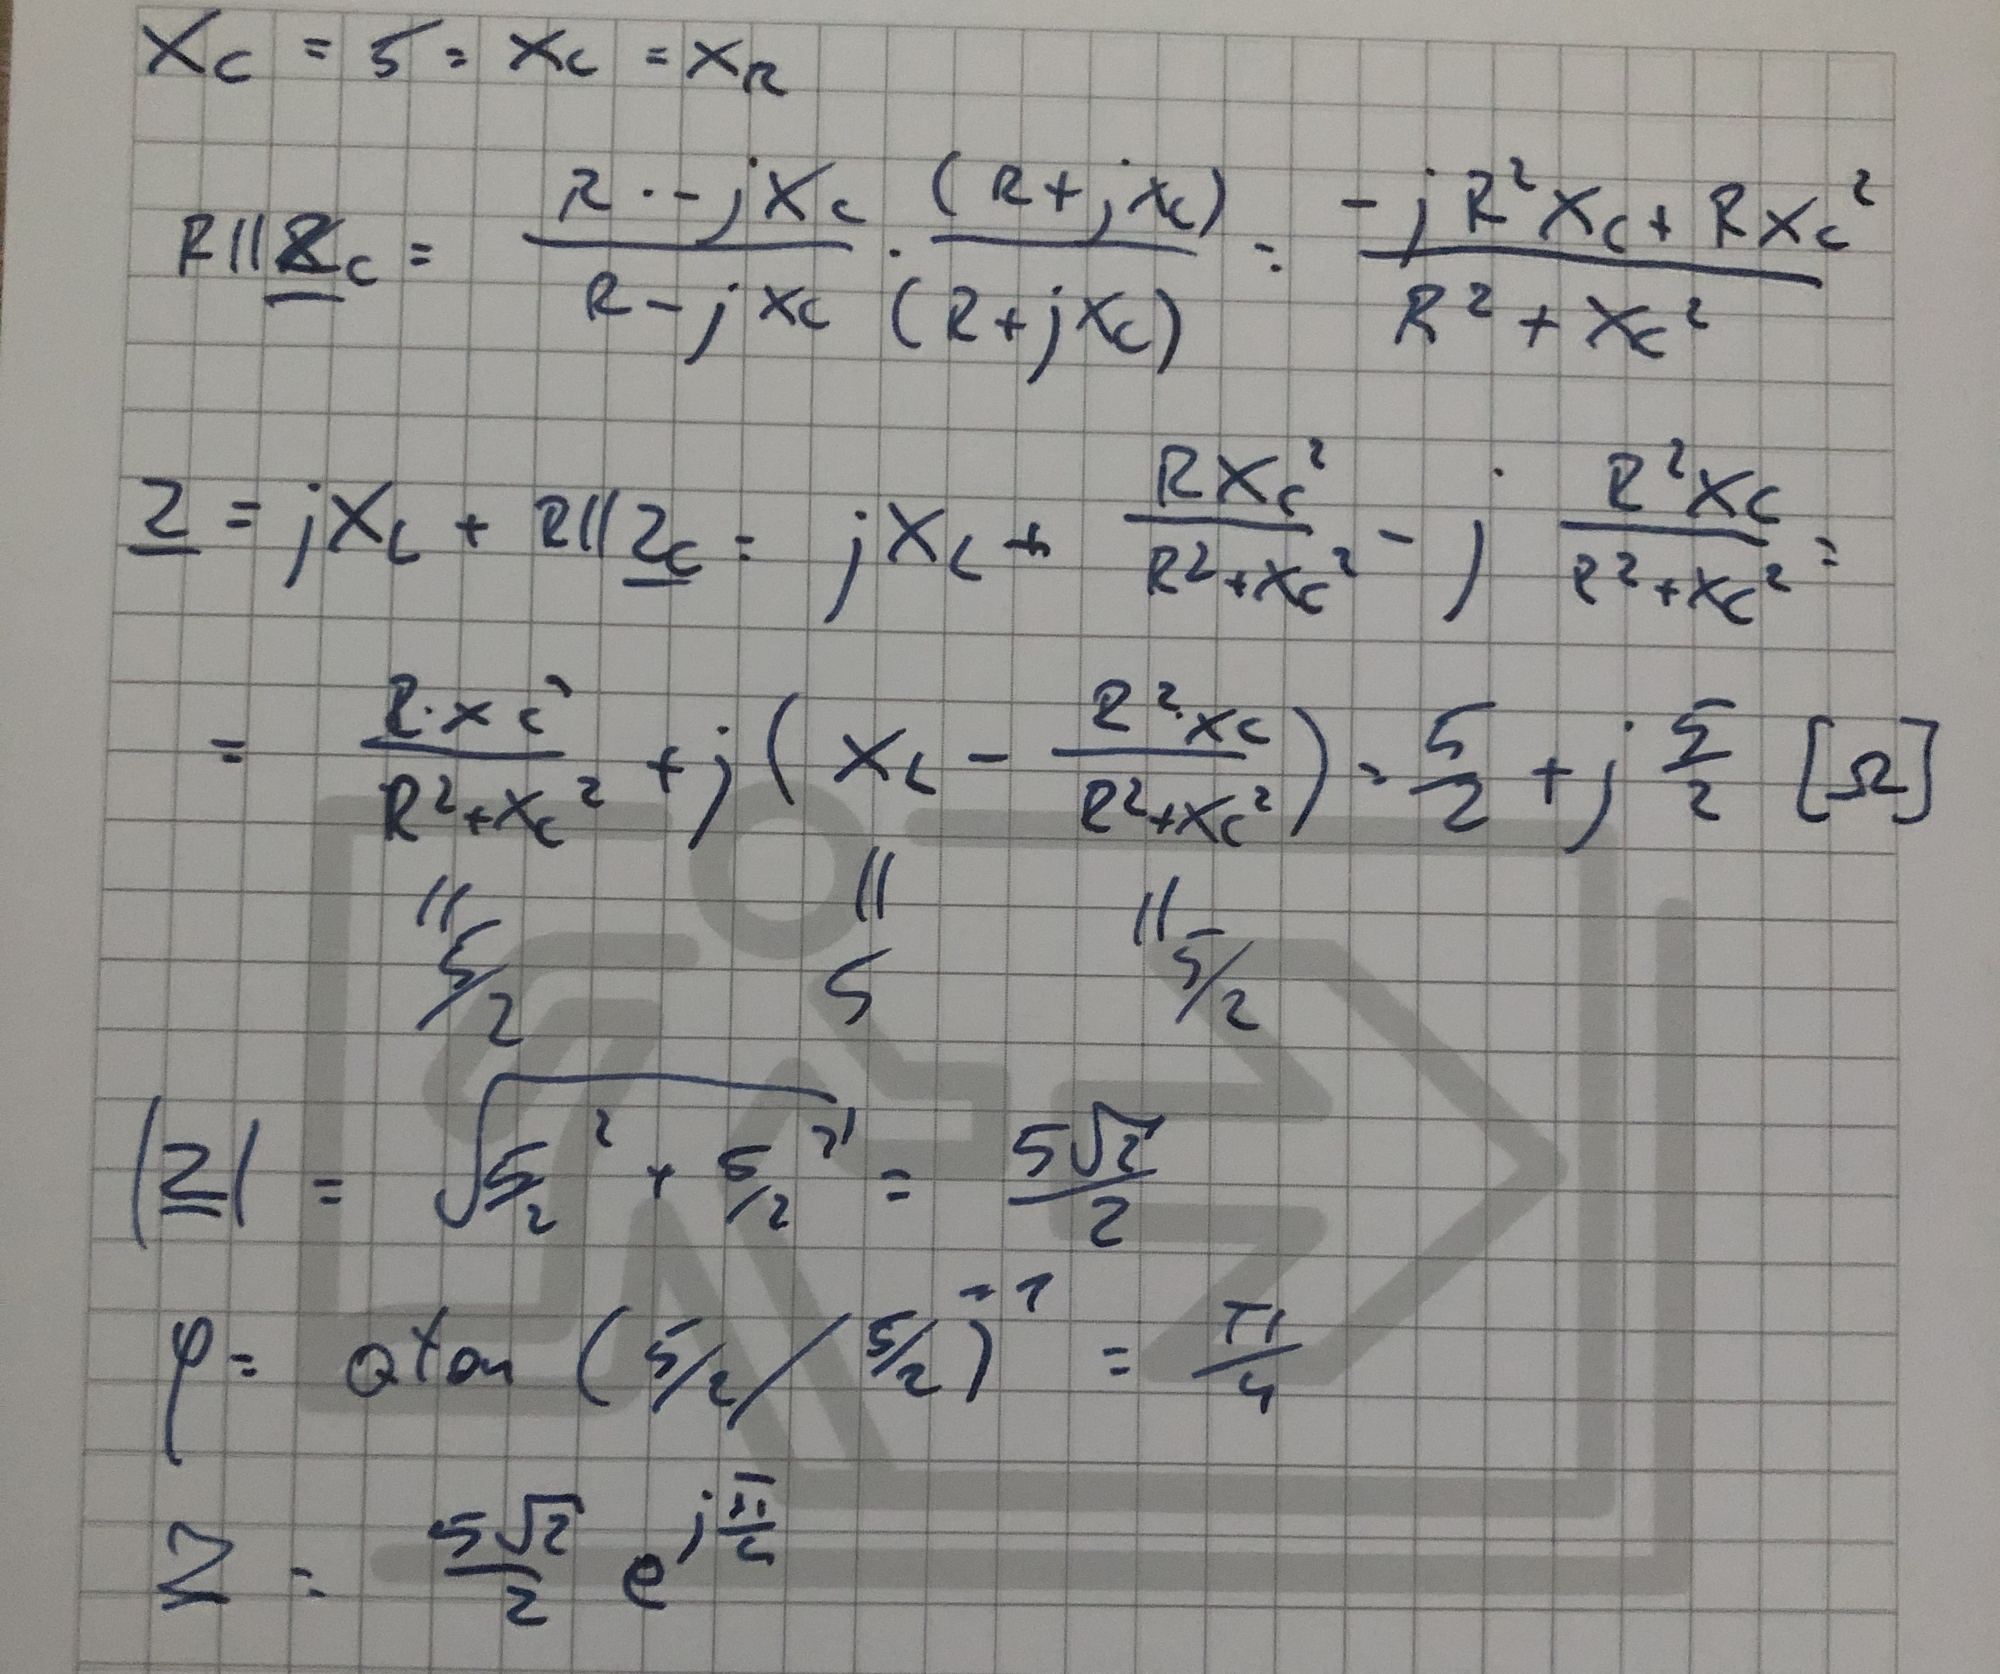 X_C = 5 = X_L = X_R
R||Z_C = (R · -jX_C)/(R - jX_C) · (R + jX_C)/(R + jX_C) = (-jR²X_C + RX_C²)/(R² + X_C²)
Z = jX_L + R||Z_C = jX_L + RX_C²/(R² + X_C²) - j R²X_C/(R² + X_C²) =
= R·X_C²/(R² + X_C²) + j(X_L - R²·X_C/(R² + X_C²)) = 5/2 + j 5/2 [Ω]
|| || ||
5/2 5 5/2
|Z| = √(5/2² + 5/2²) = 5√2/2
φ = atan (5/2 / 5/2)^{=1} = π/4
Z = 5√2/2 e^{jπ/4}